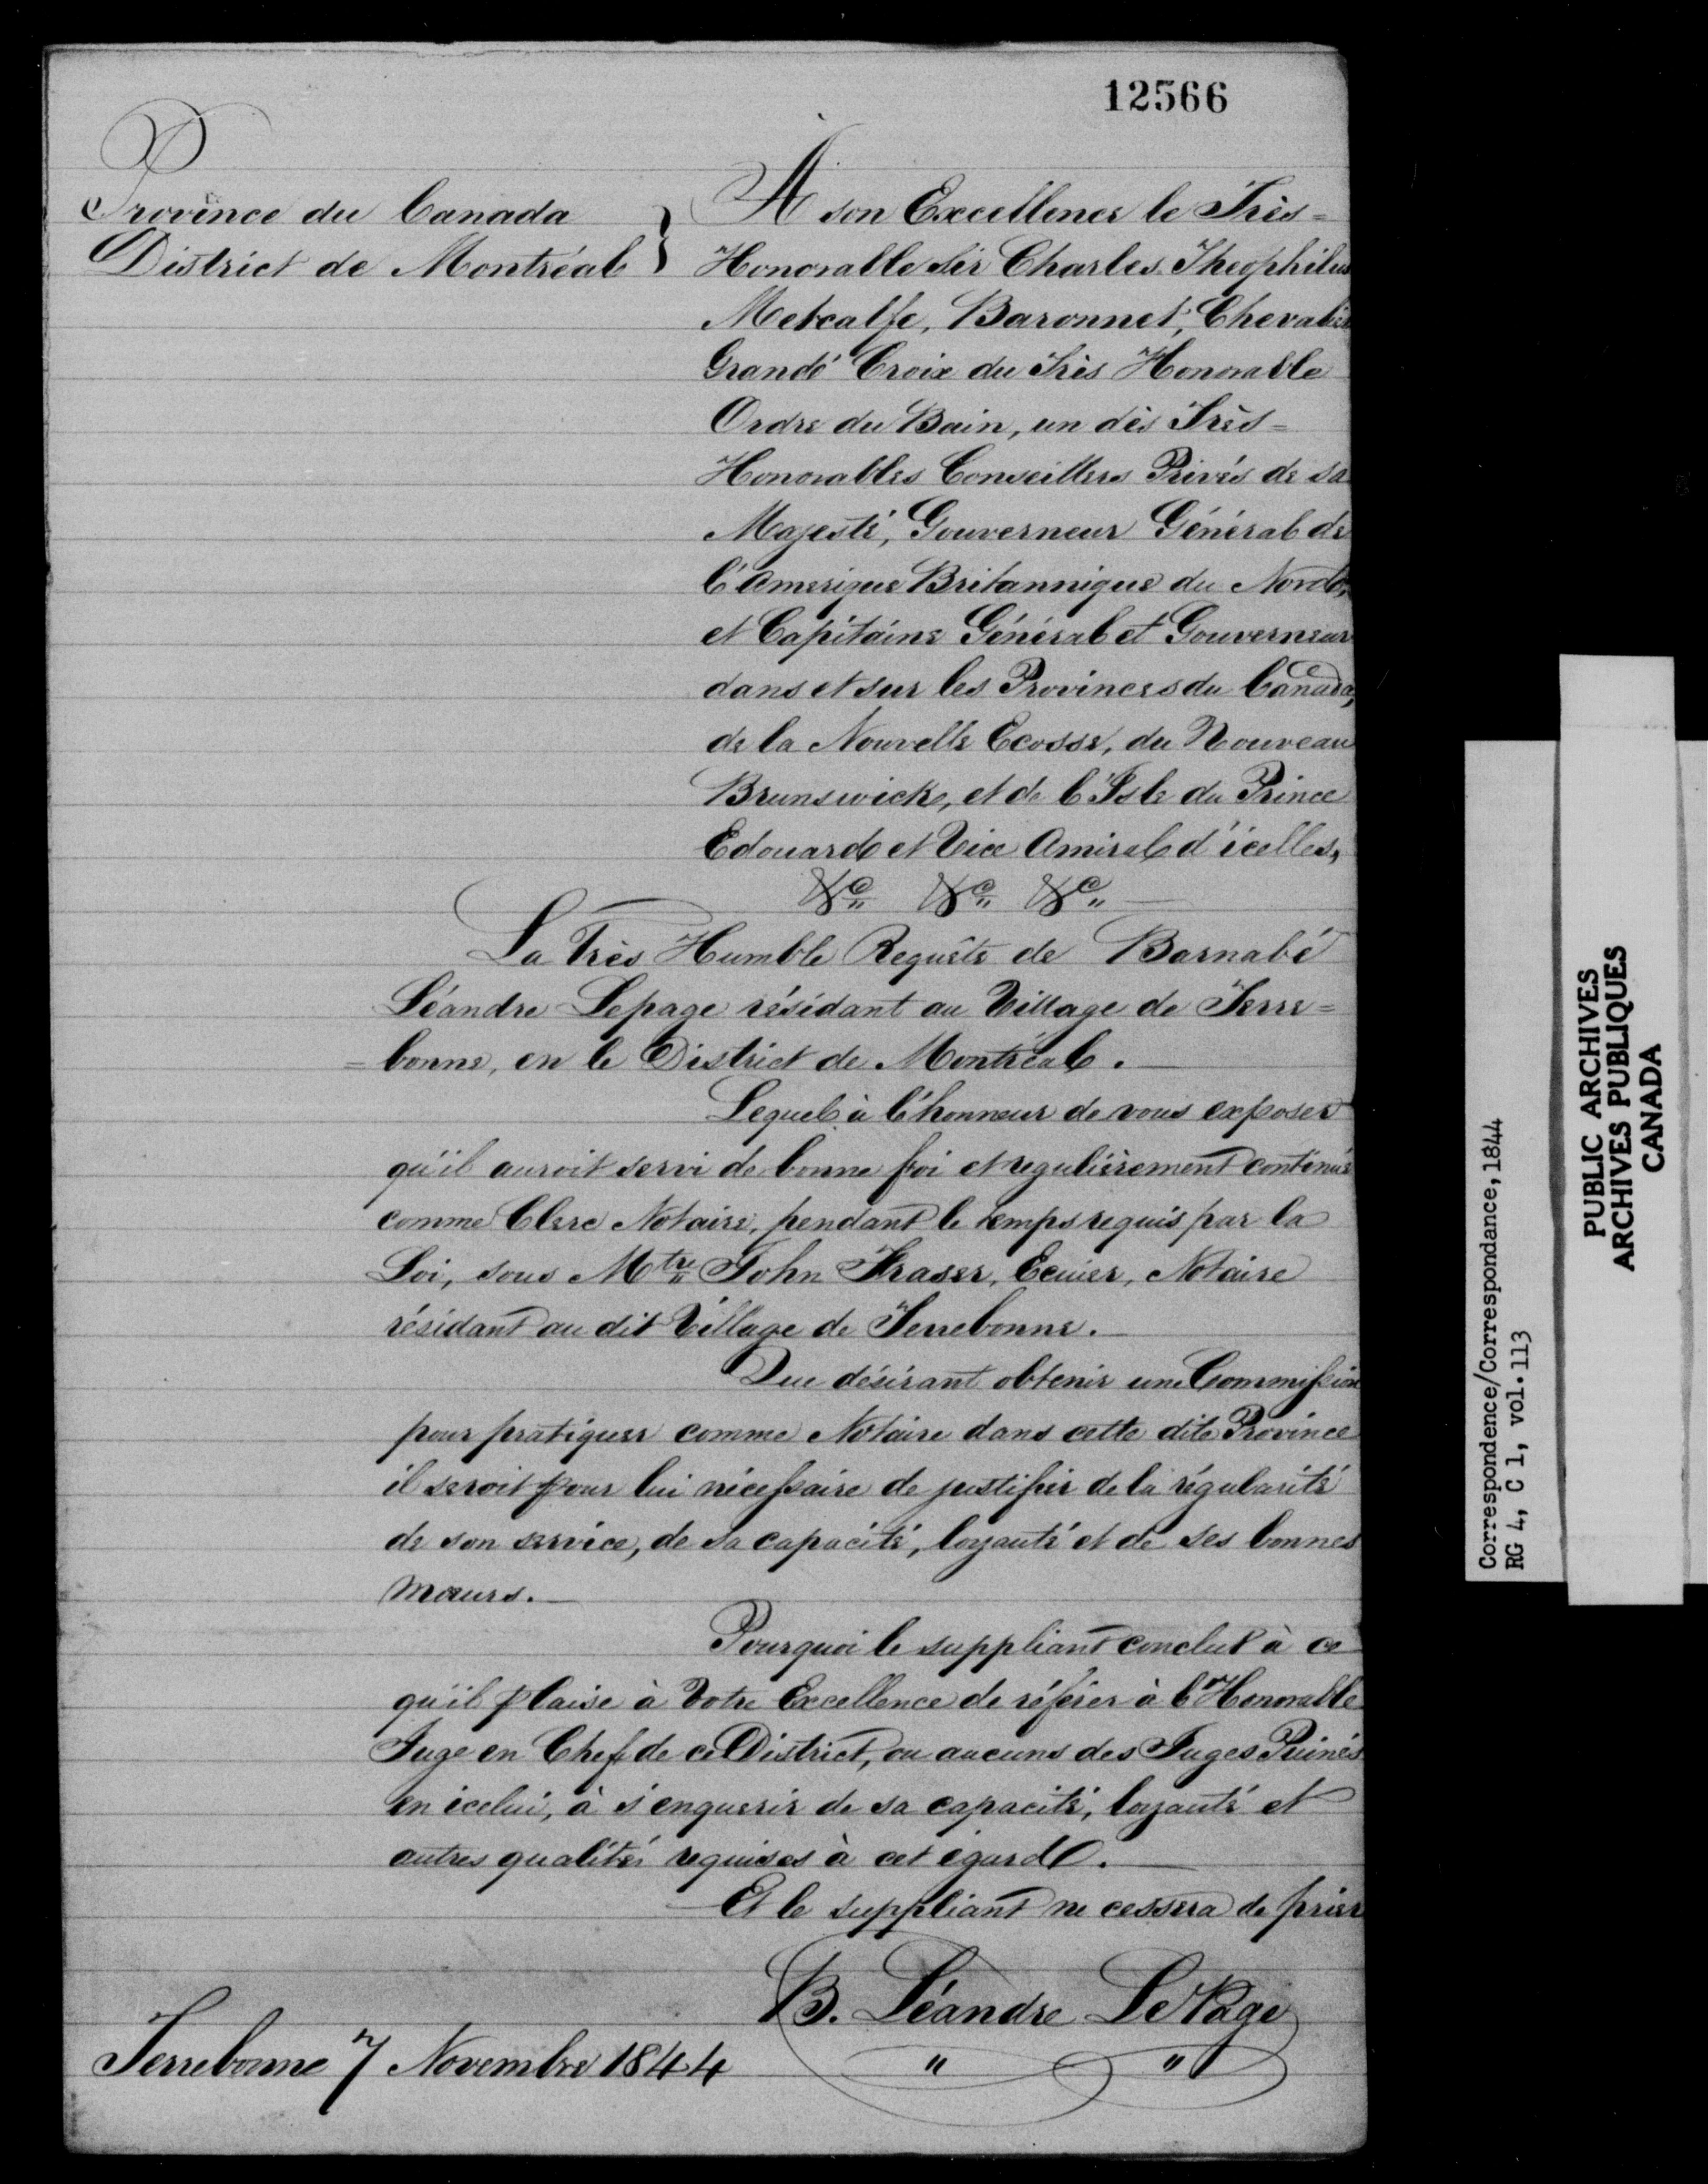 12566
Province du Canada
District de Montréal }
A son Excellence le Très=
Honorable Sir Charles Theophilus
Metcalfe, Baronnet, Chevalier
Grand' Croix du Très Honorable
Ordre du Bain, un des Très=
Honorables Conseillers Privés de sa
Majesté, Gouverneur Général de
l'Amerique Britannique du Nord,
et Capitaine Général et Gouverneur
dans et sur les Provinces du Canada,
de la Nouvelle Ecosse, du Nouveau
Brunswick, et de l'Isle du Prince
Edouard et Vice Amiral d'icelles,
&c. &c. &c.
La Très Humble Requête de Barnabé
Léandre Lepage résidant au Village de Terre=
=bonne, en le District de Montréal.
Lequel à l'honneur de vous exposer
qu'il auroit servi de bonne foi et regulièrement continué
comme Clerc Notaire, pendant le temps requis par la
Loi, sous Mtre John Fraser, Ecuier, Notaire
résidant au dit Village de Terrebonne.
Que désirant obtenir une Commission
pour pratiquer comme Notaire dans cette dite Province
il seroit pour lui nécessaire de justifier de la régularité
de son service, de sa capacité, loyauté et de ses bonnes
mœurs.
Pourquoi le suppliant conclut à ce
qu'il plaise à Votre Excellence de référer à l'Honorable
Juge en Chef de ce District, ou aucuns des Juges Puinés
en icelui, à s'enquerir de sa capacité, loyauté et
autres qualités requises à cet égard.
Et le suppliant ne cessera de prier
B. Léandre LePage
Terrebonne 7 Novembre 1844
Correspondence/Correspondance, 1844
RG 4, C 1, vol. 113
PUBLIC ARCHIVES
ARCHIVES PUBLIQUES
CANADA